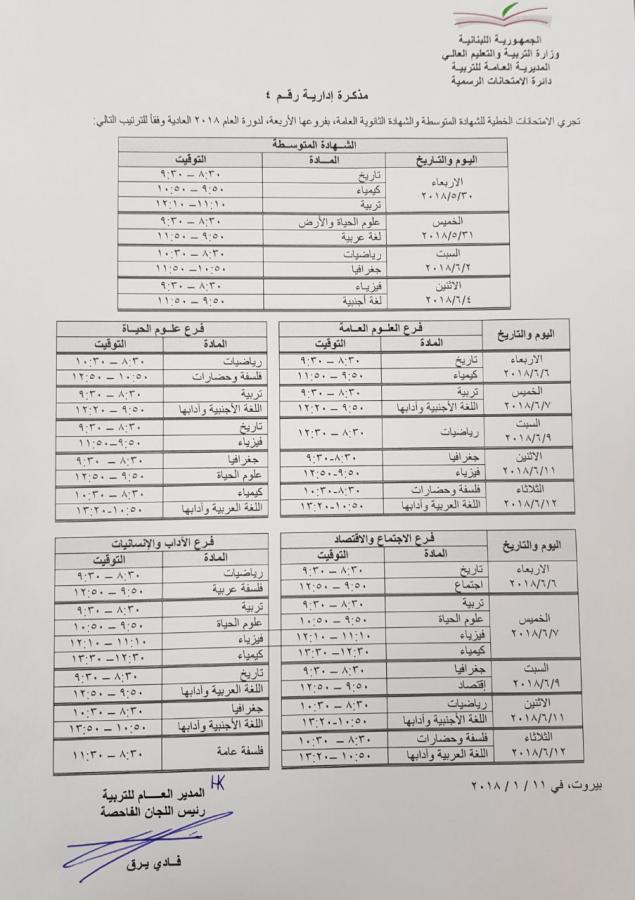 الجمهورية اللبنانية
وزارة التربية والتعليم العالي
المديرية العامة للتربية
دائرة الامتحانات الرسمية
مذكرة إدارية رقم ٤
تجري الامتحانات الخطية للشهادة المتوسطة والشهادة الثانوية العامة، بفروعها الأربعة، لدورة العام ٢٠١٨ العادية وفقاً للترتيب التالي:
الشهادة المتوسطة
اليوم والتاريخ المادة التوقيت
الاربعاء ٢٠١٨/٥/٣٠ تاريخ ٨:٣٠ – ٩:٣٠
كيمياء ٩:٥٠ – ١٠:٥٠
تربية ١١:١٠ – ١٢:١٠
الخميس ٢٠١٨/٥/٣١ علوم الحياة والأرض ٨:٣٠ – ٩:٣٠
لغة عربية ٩:٥٠ – ١١:٥٠
السبت ٢٠١٨/٦/٢ رياضيات ٨:٣٠ – ١٠:٣٠
جغرافيا ١٠:٥٠ – ١١:٥٠
الاثنين ٢٠١٨/٦/٤ فيزياء ٨:٣٠ – ٩:٣٠
لغة أجنبية ٩:٥٠ – ١١:٥٠
اليوم والتاريخ فرع العلوم العامة فرع علوم الحياة
المادة التوقيت المادة التوقيت
الاربعاء ٢٠١٨/٦/٦ تاريخ ٨:٣٠ – ٩:٣٠ رياضيات ٨:٣٠ – ١٠:٣٠
كيمياء ٩:٥٠ – ١١:٥٠ فلسفة وحضارات ١٠:٥٠ – ١٢:٥٠
الخميس ٢٠١٨/٦/٧ تربية ٨:٣٠ – ٩:٣٠ تربية ٨:٣٠ – ٩:٣٠
اللغة الأجنبية وآدابها ٩:٥٠ – ١٢:٢٠ اللغة الأجنبية وآدابها ٩:٥٠ – ١٢:٢٠
السبت ٢٠١٨/٦/٩ رياضيات ٨:٣٠ – ١٢:٣٠ تاريخ ٨:٣٠ – ٩:٣٠
فيزياء ٩:٥٠–١١:٥٠
الاثنين ٢٠١٨/٦/١١ جغرافيا ٨:٣٠-٩:٣٠ جغرافيا ٨:٣٠ – ٩:٣٠
فيزياء ٩:٥٠-١٢:٥٠ علوم الحياة ٩:٥٠ – ١٢:٥٠
الثلاثاء ٢٠١٨/٦/١٢ فلسفة وحضارات ٨:٣٠-١٠:٣٠ كيمياء ٨:٣٠ – ١٠:٣٠
اللغة العربية وآدابها ١٠:٥٠-١٣:٢٠ اللغة العربية وآدابها ١٠:٥٠-١٣:٢٠
اليوم والتاريخ فرع الاجتماع والاقتصاد فرع الآداب والإنسانيات
المادة التوقيت المادة التوقيت
الاربعاء ٢٠١٨/٦/٦ تاريخ ٨:٣٠ – ٩:٣٠ رياضيات ٨:٣٠ – ٩:٣٠
اجتماع ٩:٥٠ – ١٢:٥٠ فلسفة عربية ٩:٥٠ – ١٢:٥٠
الخميس ٢٠١٨/٦/٧ تربية ٨:٣٠ – ٩:٣٠ تربية ٨:٣٠ – ٩:٣٠
علوم الحياة ٩:٥٠ – ١٠:٥٠ علوم الحياة ٩:٥٠ – ١٠:٥٠
فيزياء ١١:١٠ – ١٢:١٠ فيزياء ١١:١٠ – ١٢:١٠
كيمياء ١٢:٣٠– ١٣:٣٠ كيمياء ١٢:٣٠– ١٣:٣٠
السبت ٢٠١٨/٦/٩ جغرافيا ٨:٣٠ – ٩:٣٠ تاريخ ٨:٣٠ – ٩:٣٠
إقتصاد ٩:٥٠ – ١٢:٥٠ اللغة العربية وآدابها ٩:٥٠ – ١٢:٥٠
الاثنين ٢٠١٨/٦/١١ رياضيات ٨:٣٠ – ١٠:٣٠ جغرافيا ٨:٣٠ – ١٠:٣٠
اللغة الأجنبية وآدابها ١٠:٥٠-١٣:٢٠ اللغة الأجنبية وآدابها ١٠:٥٠ – ١٣:٥٠
الثلاثاء ٢٠١٨/٦/١٢ فلسفة وحضارات ٨:٣٠ – ١٠:٣٠ فلسفة عامة ٨:٣٠ – ١١:٣٠
اللغة العربية وآدابها ١٠:٥٠ – ١٣:٢٠
بيروت، في ١١ / ١ / ٢٠١٨
HK
المدير العـــام للتربية
رئيس اللجان الفاحصة
فـادي يـرق